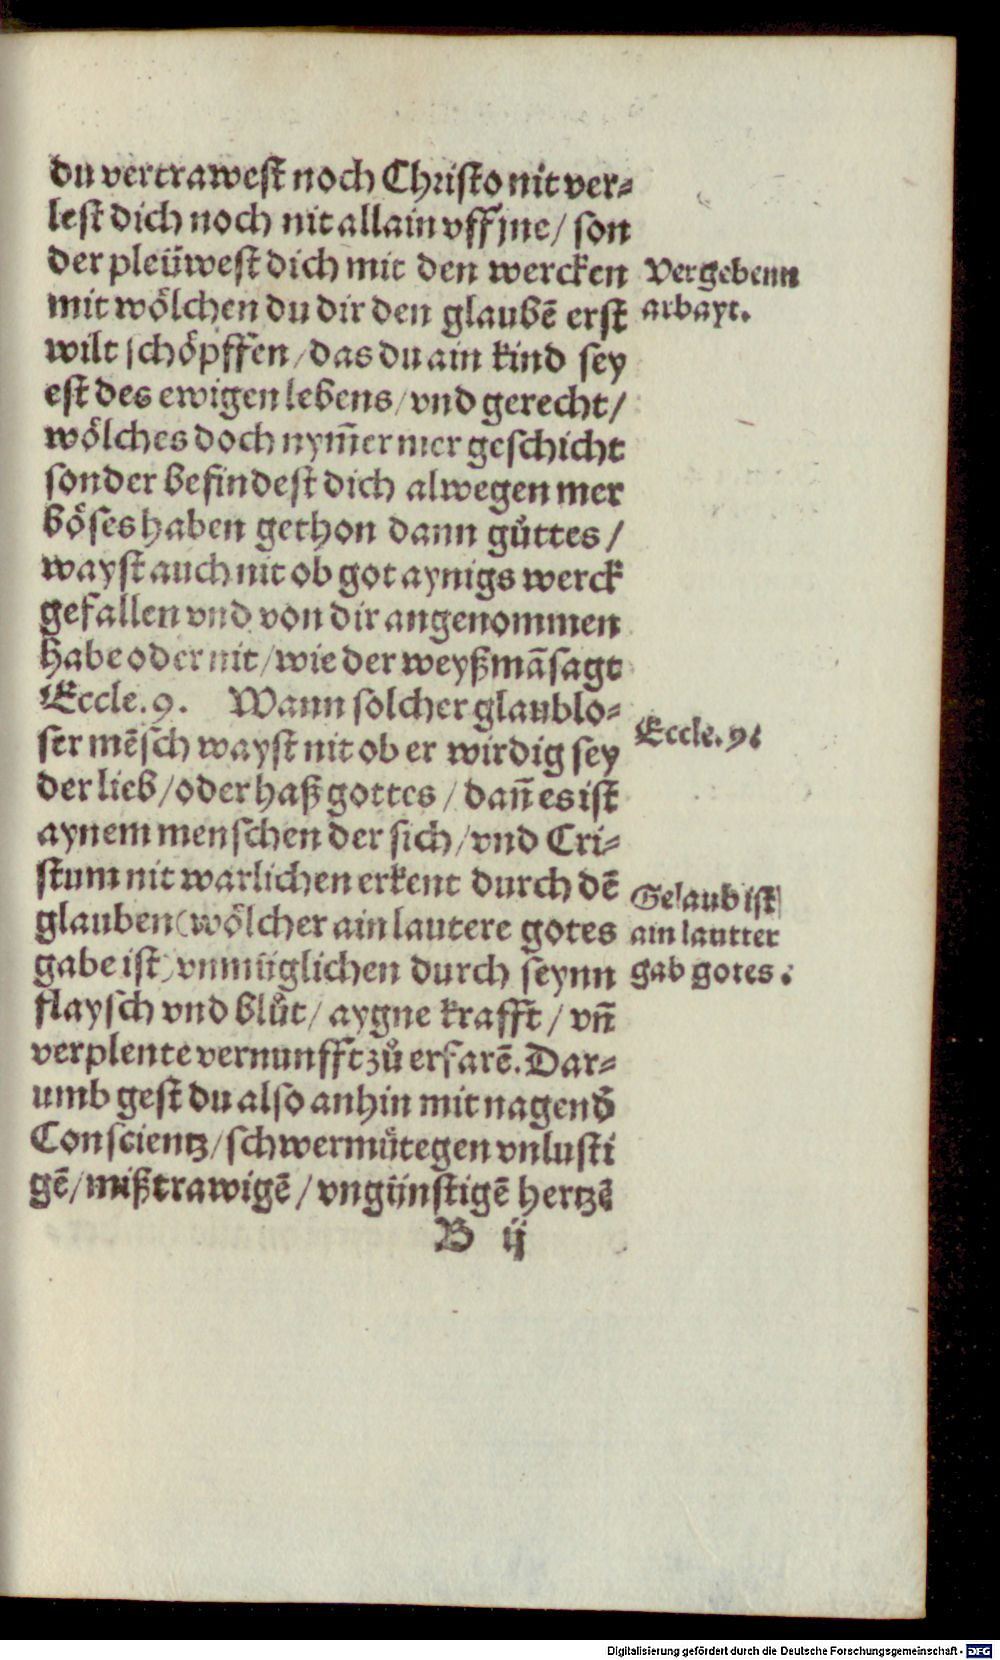 du vertrawest noch Christo nit ver⸗
lest dich noch nit allain vff jne/ son
der pleüwest dich mit den wercken
mit wölchen du dir den glaubē erst
wilt schöpffen/das du ain kind sey
est des ewigen lebens/vnd gerecht/
wölches doch nym̄er mer geschicht
sonder befindest dich alwegen mer
böses haben gethon dann gůttes/
wayst auch nit ob got aynigs werck
gefallen vnd von dir angenommen
habe oder nit/wie der weyßmāsagt
Eccle.9. Wann solcher glaublo⸗
ser mēsch wayst nit ob er wirdig sey
der lieb/oder haß gottes/dan̄ es ist
aynem menschen der sich/vnd Cri⸗
stum nit warlichen erkent durch dē
glauben(wölcher ain lautere gotes
gabe ist)vnmüglichen durch seynn
flaysch vnd blůt/aygne krafft/vn̄
verplente vernunfft zů erfarē.Dar⸗
umb gest du also anhin mit nagend̄
Conscientz/schwermůtegen vnlusti
gē/mißtrawigē/vngünstigē hertzē
B ij
Vergebenn
arbayt.
Eccle.9.
Gelaub ist
ain lautter
gab gotes.
Digitalisierung gefördert durch die Deutsche Forschungsgemeinschaft - DFG